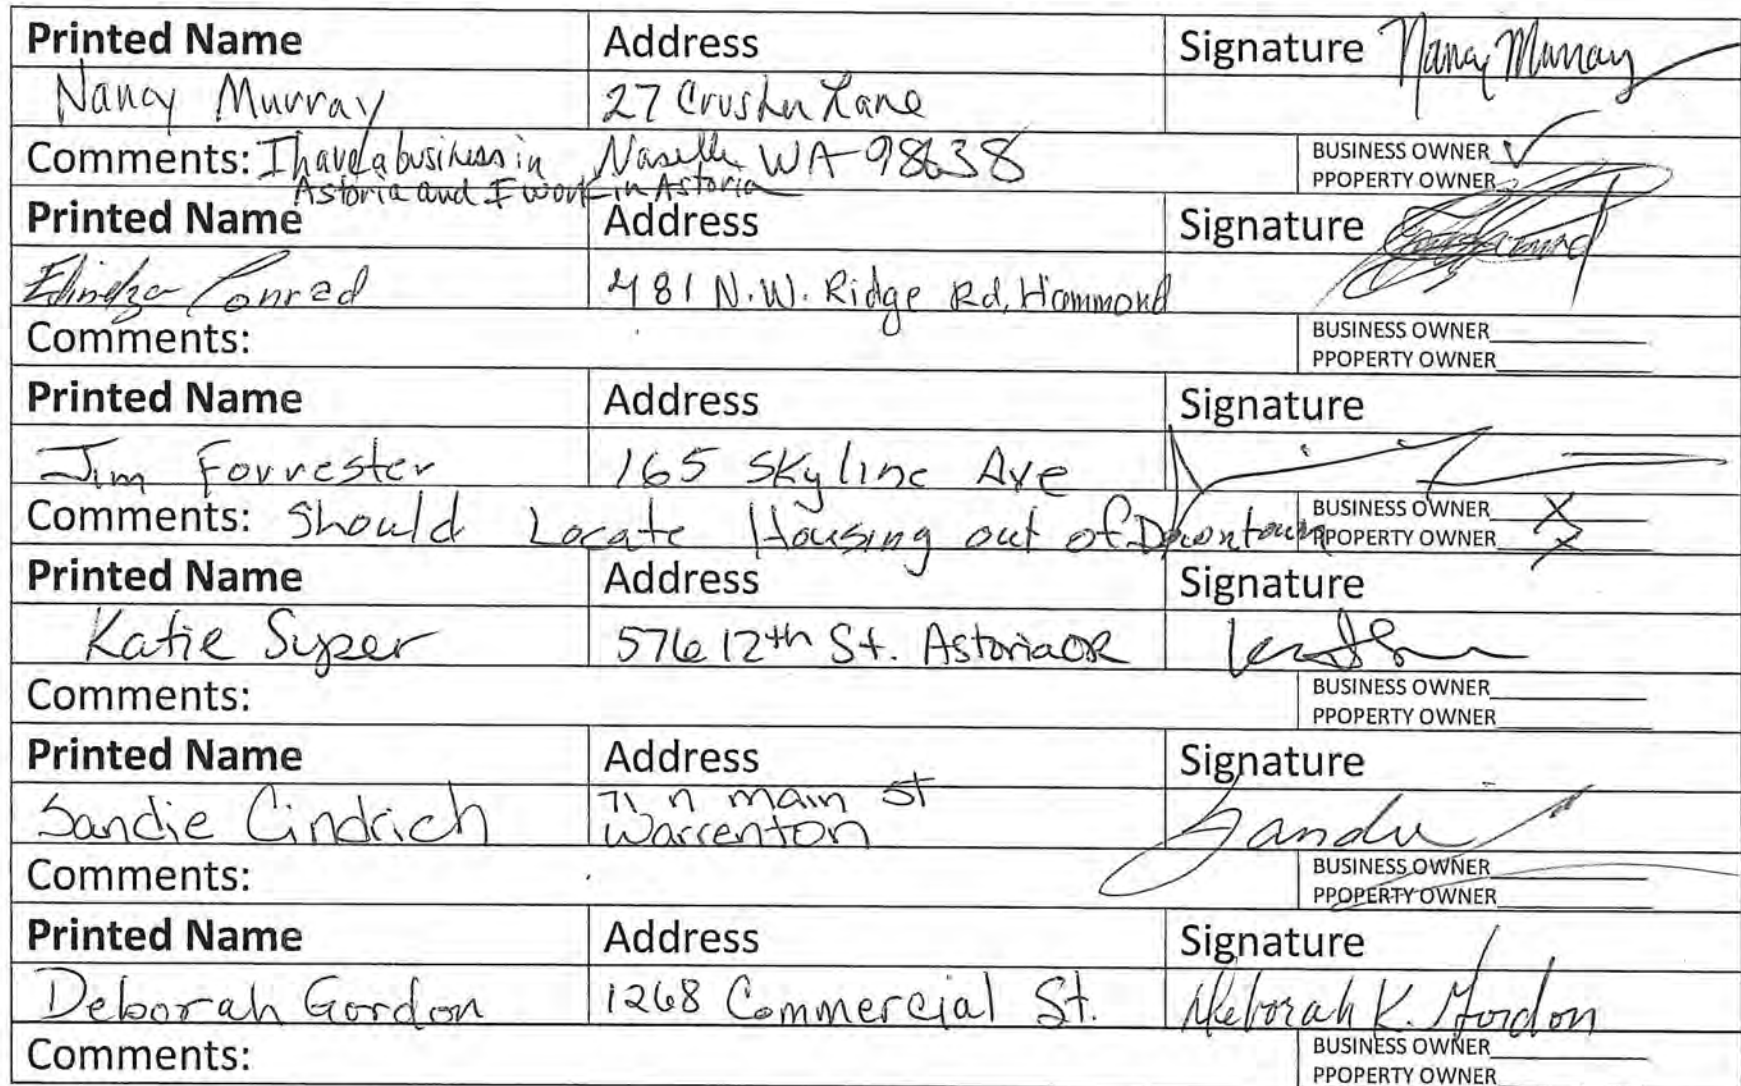 Printed Name Address Signature Nancy Murray
Nancy Murray 27 Crusher Lane
Comments: I have a business in Naselle WA 98638 BUSINESS OWNER ✓
Astoria and I work in Astoria PPOPERTY OWNER
Printed Name Address Signature
Conrad 481 N.W. Ridge Rd, Hammond
Comments: BUSINESS OWNER
PPOPERTY OWNER
Printed Name Address Signature
Jim Forrester 165 Skyline Ave
Comments: Should Locate Housing out of Downtown BUSINESS OWNER X
PPOPERTY OWNER X
Printed Name Address Signature
Katie Syzer 576 12th St. Astoria OR
Comments: BUSINESS OWNER
PPOPERTY OWNER
Printed Name Address Signature
71 n main St
Sandie Cindrich Warrenton Sandie
Comments: BUSINESS OWNER
PPOPERTY OWNER
Printed Name Address Signature
Deborah Gordon 1268 Commercial St. Deborah K. Gordon
Comments: BUSINESS OWNER
PPOPERTY OWNER